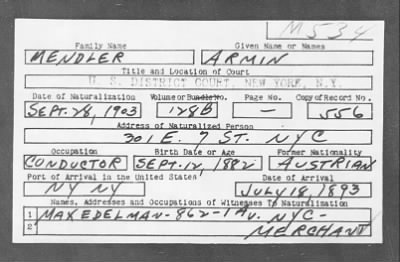 M534
Family Name Given Name or Names
MENDLER ARMIN
Title and Location of Court
U. S. DISTRICT COURT, NEW YORK, N.Y.
Date of Naturalization Volume or Bundle No. Page No. Copy of Record No.
SEPT. 28, 1903 128B — 556
Address of Naturalized Person
301 E. 7 ST. NYC
Occupation Birth Date or Age Former Nationality
CONDUCTOR SEPT. 12, 1882 AUSTRIAN
Port of Arrival in the United States Date of Arrival
NY NY JULY 18, 1893
Names, Addresses and Occupations of Witnesses To Naturalization
1 MAX EDELMAN-862-1 AV. NYC-
2 MERCHANT